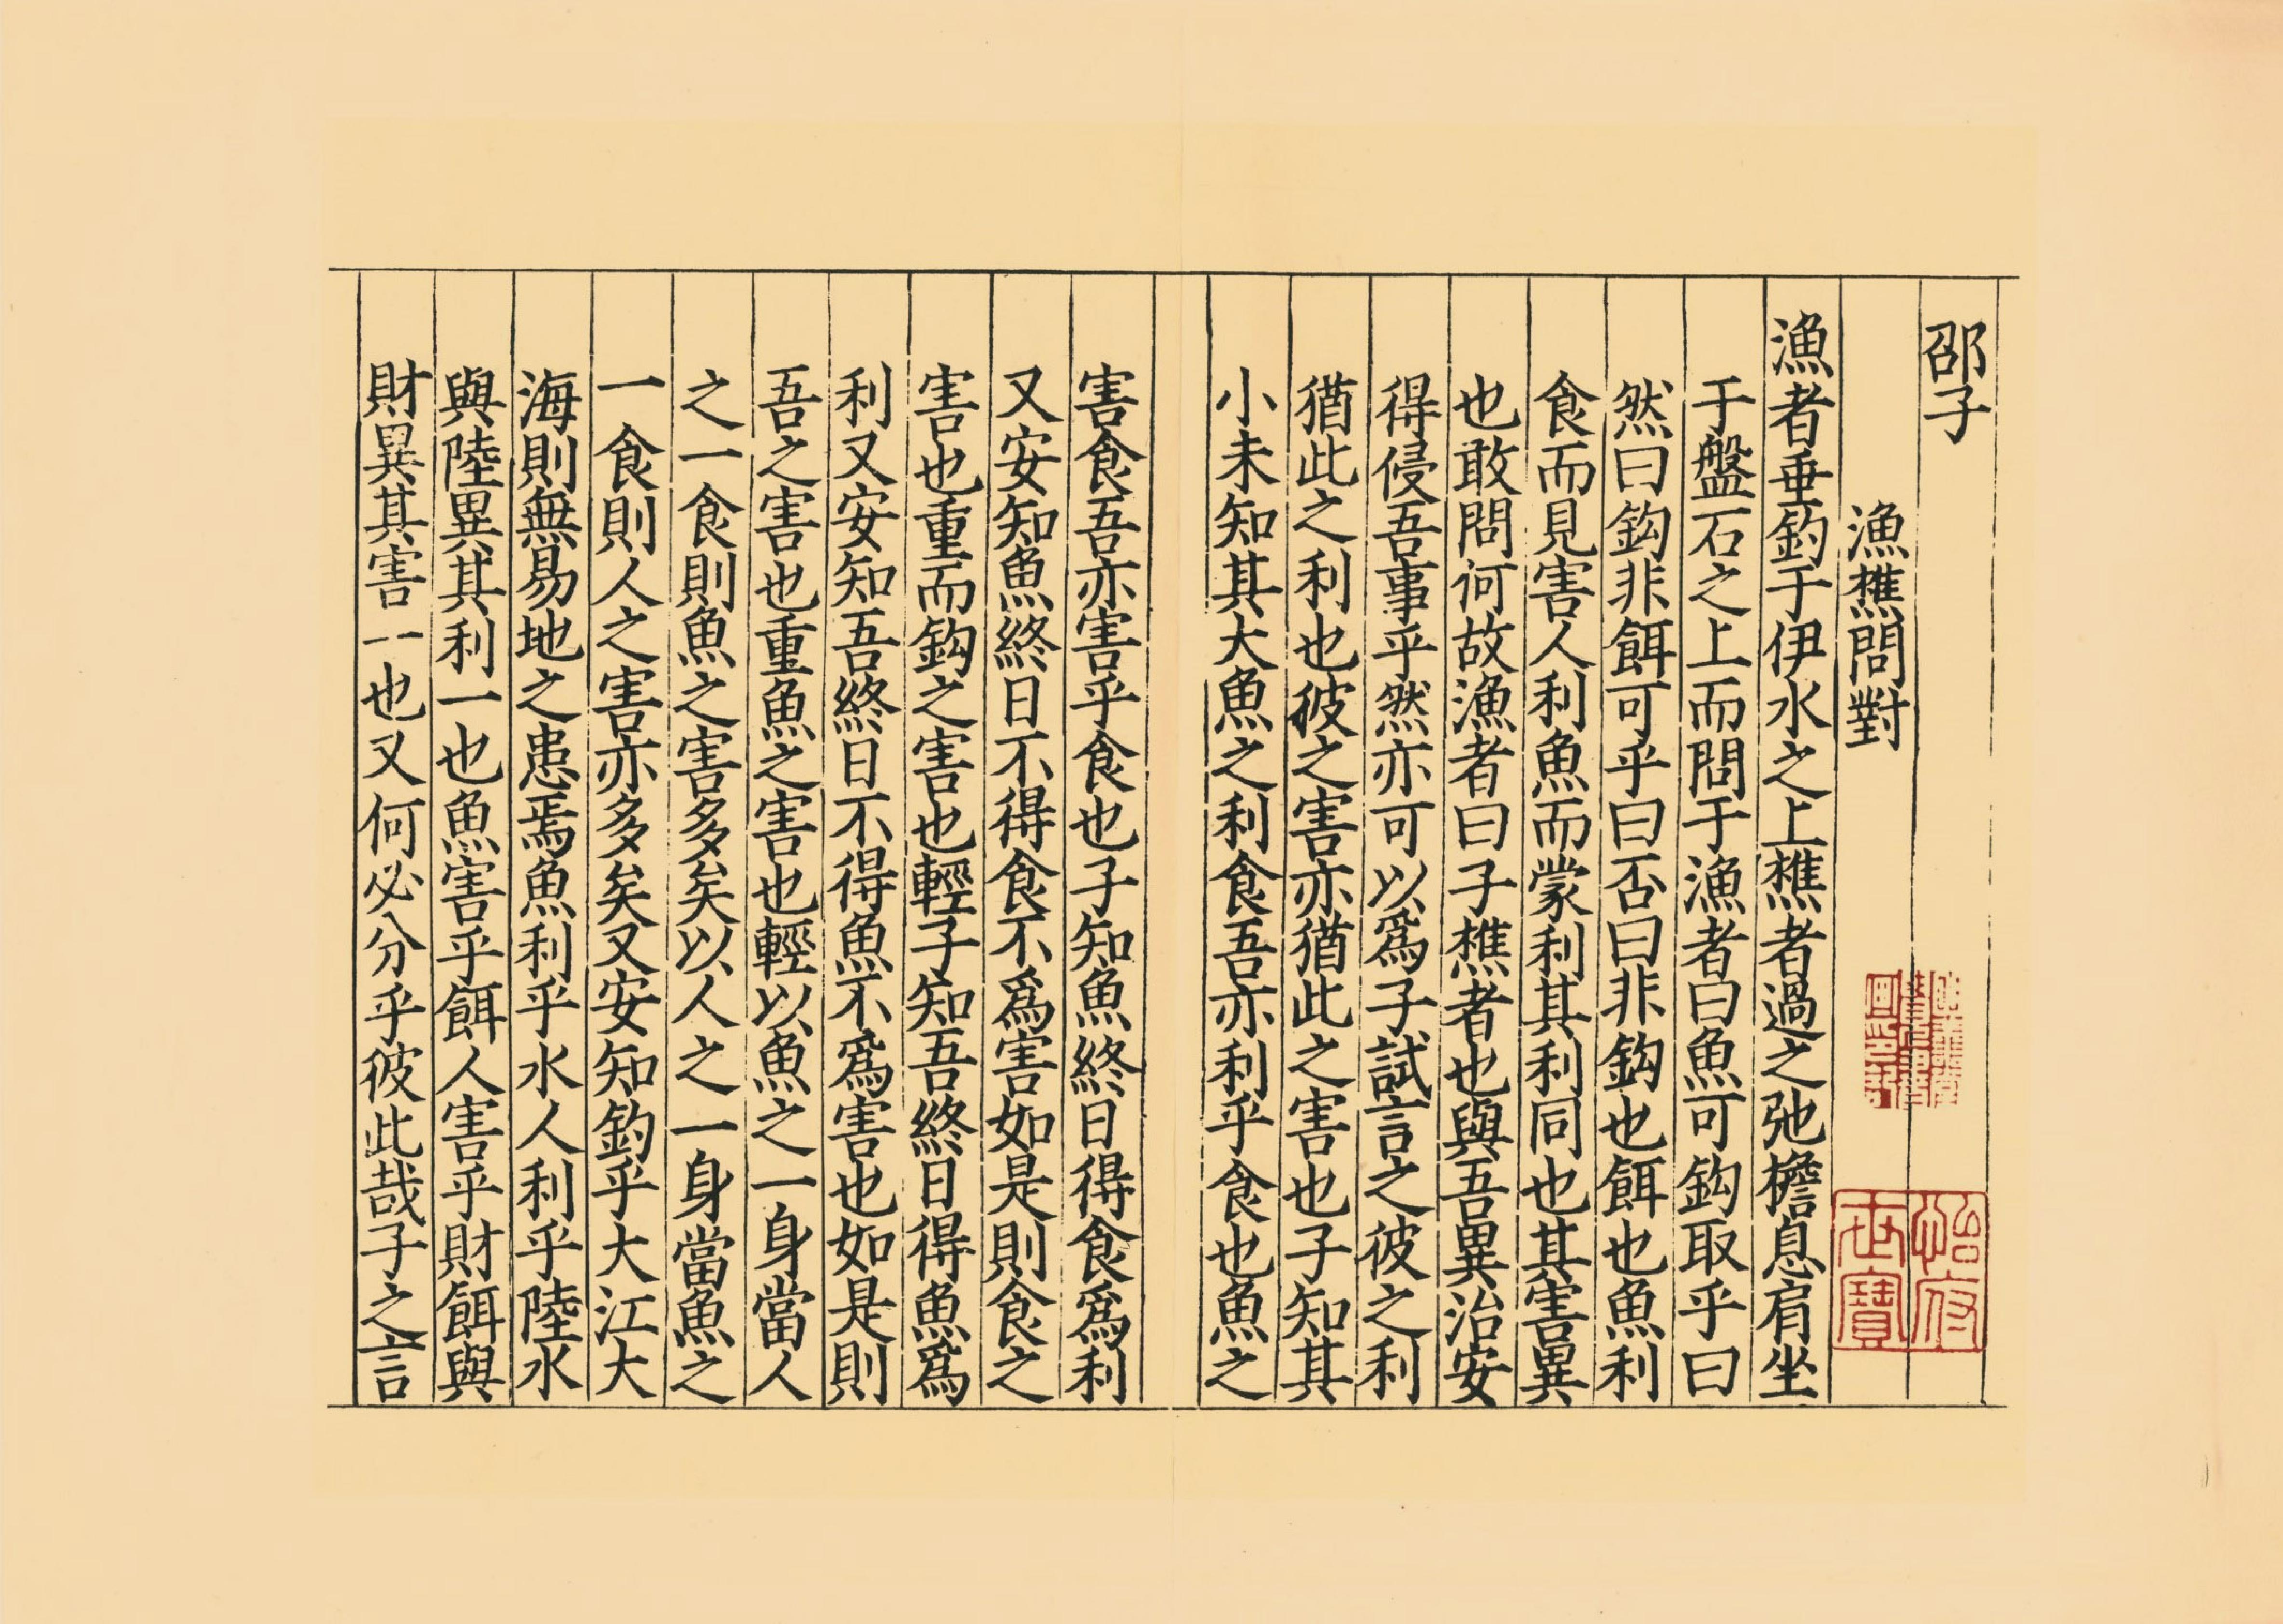 邵子
漁樵問對
漁者垂釣于伊水之上樵者過之弛檐息肩坐
于盤石之上而問于漁者曰魚可鈎取乎曰
然曰鈎非餌可乎曰否曰非鈎也餌也魚利
食而見害人利魚而蒙利其利同也其害異
也敢問何故漁者曰子樵者也與吾異治安
得侵吾事乎然亦可以爲子試言之彼之利
猶此之利也彼之害亦猶此之害也子知其
小未知其大魚之利食吾亦利乎食也魚之
害食吾亦害乎食也子知魚終日得食爲利
又安知魚終日不得食不爲害如是則食之
害也重而鈎之害也輕子知吾終日得魚爲
利又安知吾終日不得魚不爲害也如是則
吾之害也重魚之害也輕以魚之一身當人
之一食則魚之害多矣以人之一身當魚之
一食則人之害亦多矣又安知釣乎大江大
海則無易地之患焉魚利乎水人利乎陸水
與陸異其利一也魚害乎餌人害乎財餌與
財異其害一也又何必分乎彼此哉子之言
怡府
世寶